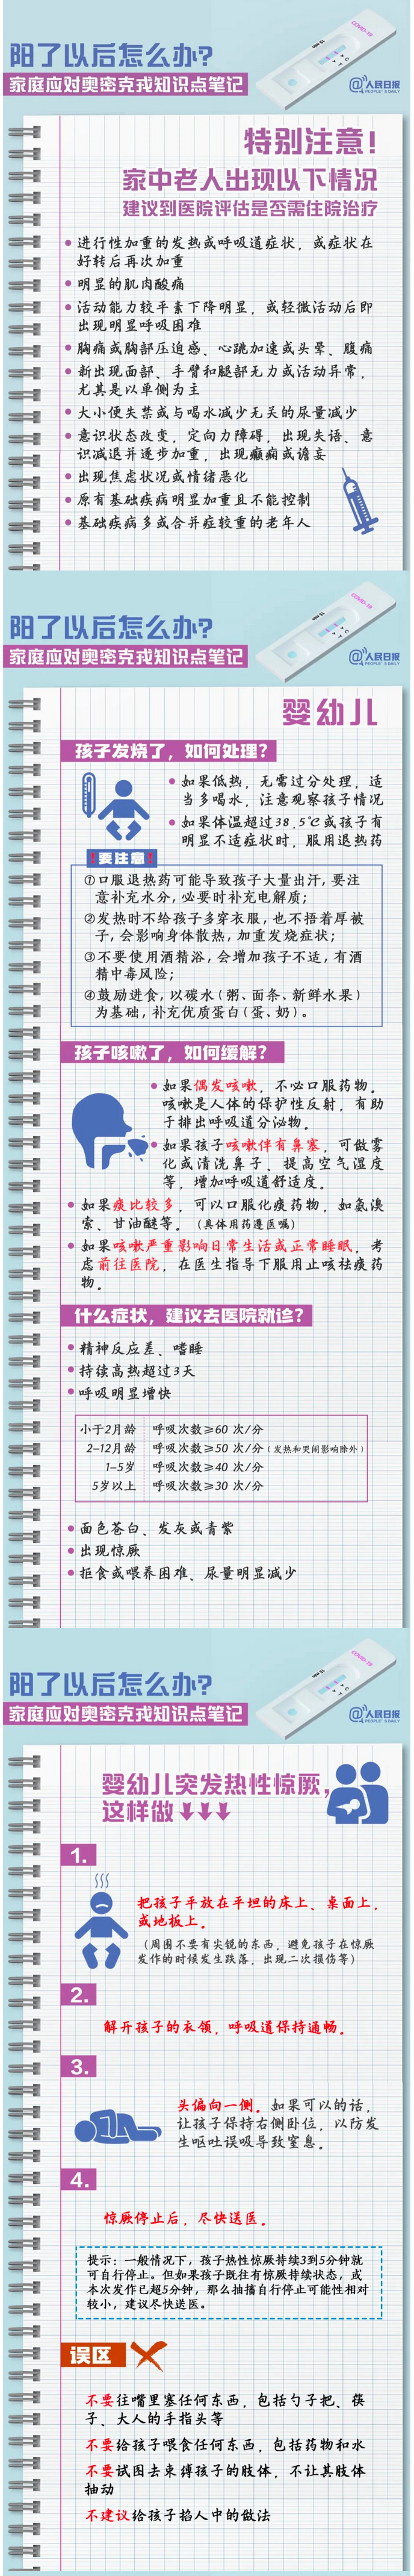 阳了以后怎么办?
COVID-19
家庭应对奥密克戎知识点笔记
@人民日报
PEOPLE'S DAILY
特别注意!
家中老人出现以下情况
建议到医院评估是否需住院治疗
进行性加重的发热或呼吸道症状,或症状在
好转后再次加重
明显的肌肉酸痛
活动能力较平素下降明显,或轻微活动后即
出现明显呼吸困难
胸痛或胸部压迫感、心跳加速或头晕、腹痛
新出现面部、手臂和腿部无力或活动异常,
尤其是以单侧为主
大小便失禁或与喝水减少无关的尿量减少
意识状态改变,定向力障碍,出现失语、意
识减退并逐步加重,出现癫痫或谵妄
出现焦虑状况或情绪恶化
原有基础疾病明显加重且不能控制
基础疾病多或合并症较重的老年人
阳了以后怎么办?
COVID-19
家庭应对奥密克戎知识点笔记
@人民日报
PEOPLE'S DAILY
婴幼儿
孩子发烧了,如何处理?
如果低热,无需过分处理,适
当多喝水,注意观察孩子情况
如果体温超过38.5℃或孩子有
明显不适症状时,服用退热药
!要注意!
①口服退热药可能导致孩子大量出汗,要注
意补充水分,必要时补充电解质;
②发热时不给孩子多穿衣服,也不捂着厚被
子,会影响身体散热,加重发烧症状;
③不要使用酒精浴,会增加孩子不适,有酒
精中毒风险;
④鼓励进食,以碳水(粥、面条、新鲜水果)
为基础,补充优质蛋白(蛋、奶)。
孩子咳嗽了,如何缓解?
如果偶发咳嗽,不必口服药物。
咳嗽是人体的保护性反射,有助
于排出呼吸道分泌物。
如果孩子咳嗽伴有鼻塞,可做雾
化或清洗鼻子、提高空气湿度
等,增加呼吸道舒适度。
如果痰比较多,可以口服化痰药物,如氨溴
索、甘油醚等。(具体用药遵医嘱)
如果咳嗽严重影响日常生活或正常睡眠,考
虑前往医院,在医生指导下服用止咳祛痰药
物。
什么症状,建议去医院就诊?
精神反应差、嗜睡
持续高热超过3天
呼吸明显增快
小于2月龄 呼吸次数≥60 次/分
2-12月龄 呼吸次数≥50 次/分(发热和哭闹影响除外)
1-5岁 呼吸次数≥40 次/分
5岁以上 呼吸次数≥30 次/分
面色苍白、发灰或青紫
出现惊厥
拒食或喂养困难、尿量明显减少
阳了以后怎么办?
COVID-19
家庭应对奥密克戎知识点笔记
@人民日报
PEOPLE'S DAILY
婴幼儿突发热性惊厥,
这样做
1.
把孩子平放在平坦的床上、桌面上,
或地板上。
(周围不要有尖锐的东西,避免孩子在惊厥
发作的时候发生跌落,出现二次损伤等)
2.
解开孩子的衣领,呼吸道保持通畅。
3.
头偏向一侧。如果可以的话,
让孩子保持右侧卧位,以防发
生呕吐误吸导致窒息。
4.
惊厥停止后,尽快送医。
提示:一般情况下,孩子热性惊厥持续3到5分钟就
可自行停止。但如果孩子既往有惊厥持续状态,或
本次发作已超5分钟,那么抽搐自行停止可能性相对
较小,建议尽快送医。
误区
不要往嘴里塞任何东西,包括勺子把、筷
子、大人的手指头等
不要给孩子喂食任何东西,包括药物和水
不要试图去束缚孩子的肢体,不让其肢体
抽动
不建议给孩子掐人中的做法